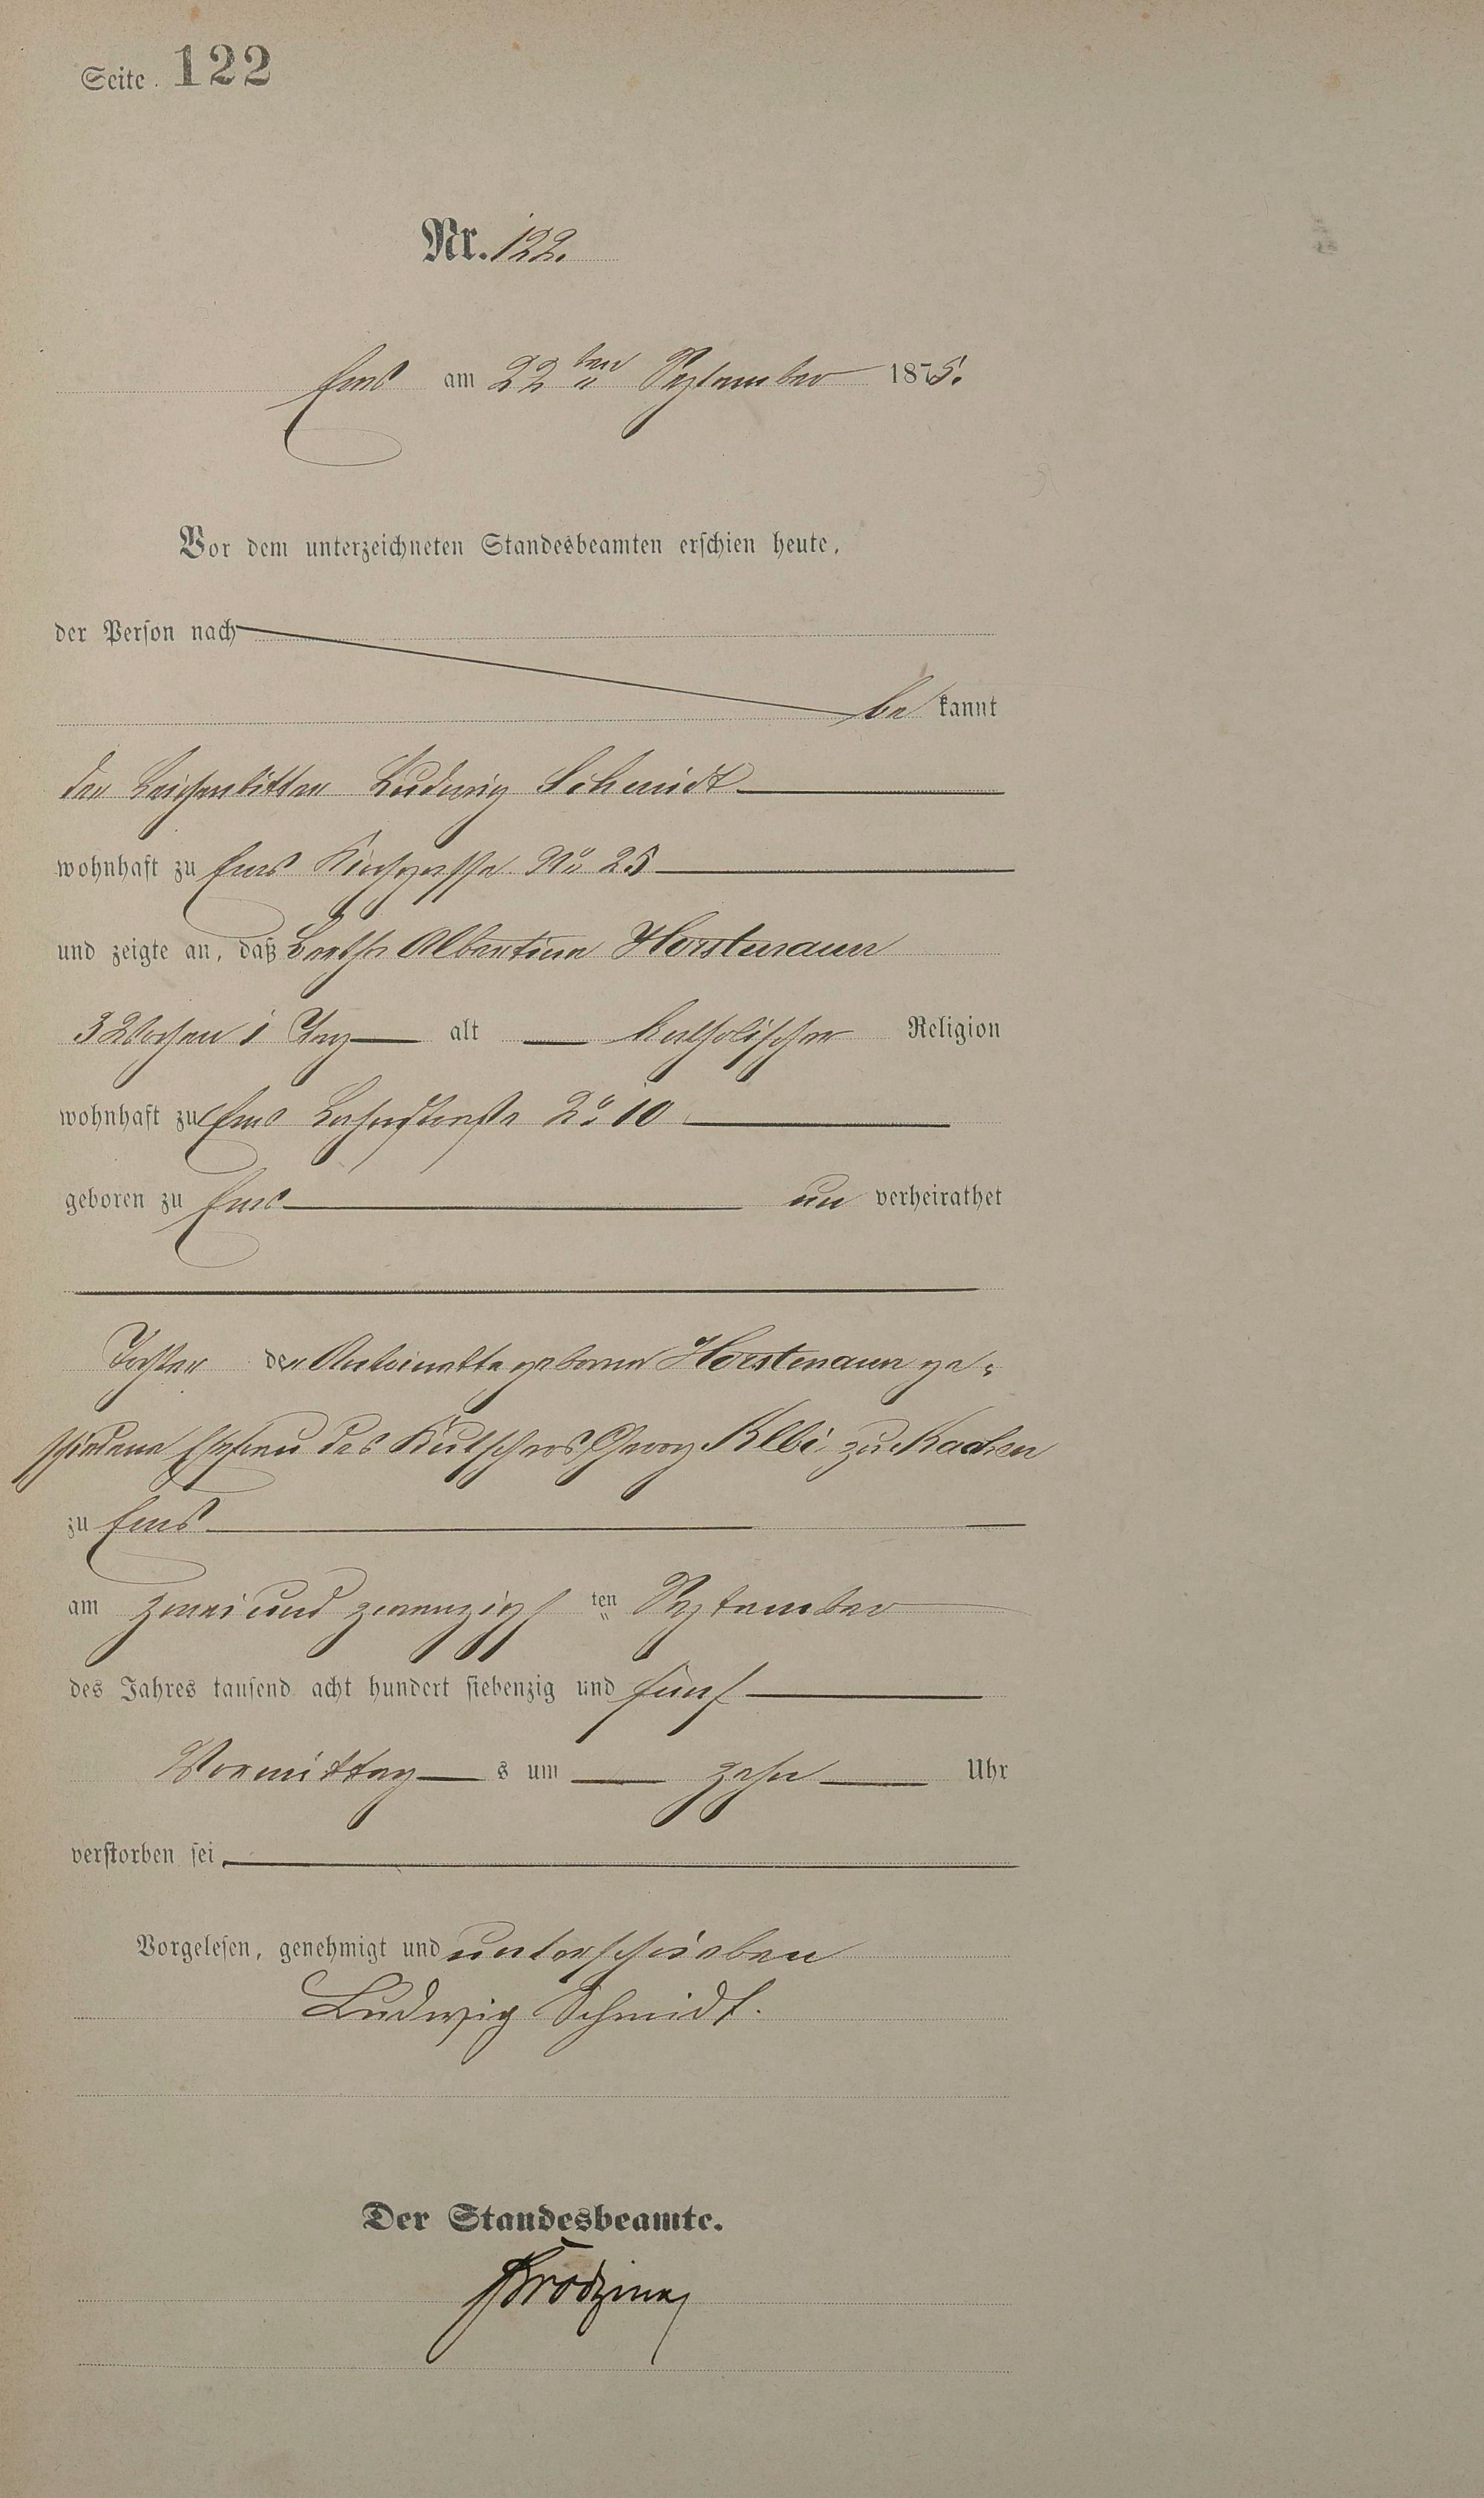 Seite. 122
Nr. 122.
Ems am 22ten September 1875.
Vor dem unterzeichneten Standesbeamten erschien heute,
der Person nach
be kannt
der Leichenbitter Ludwig Schmidt
wohnhaft zu Ems Kirchgasse No 25
und zeigte an, daß Bertha Albertine Horstmann
3 Wochen 1 Tag alt katholischer Religion
wohnhaft zu Ems Lahnstraße No 10
geboren zu Ems un verheirathet
Tochter der Antoinette geborne Horstmann ge-
schiedene Ehefrau des Kutschers Georg zu Aachen
zu Ems
am zwei und zwanzigsten September
des Jahres tausend acht hundert siebenzig und fünf
Vormittag s um zehn Uhr
verstorben sei.
Vorgelesen, genehmigt und unterschrieben
Ludwig Schmidt.
Der Standesbeamte.